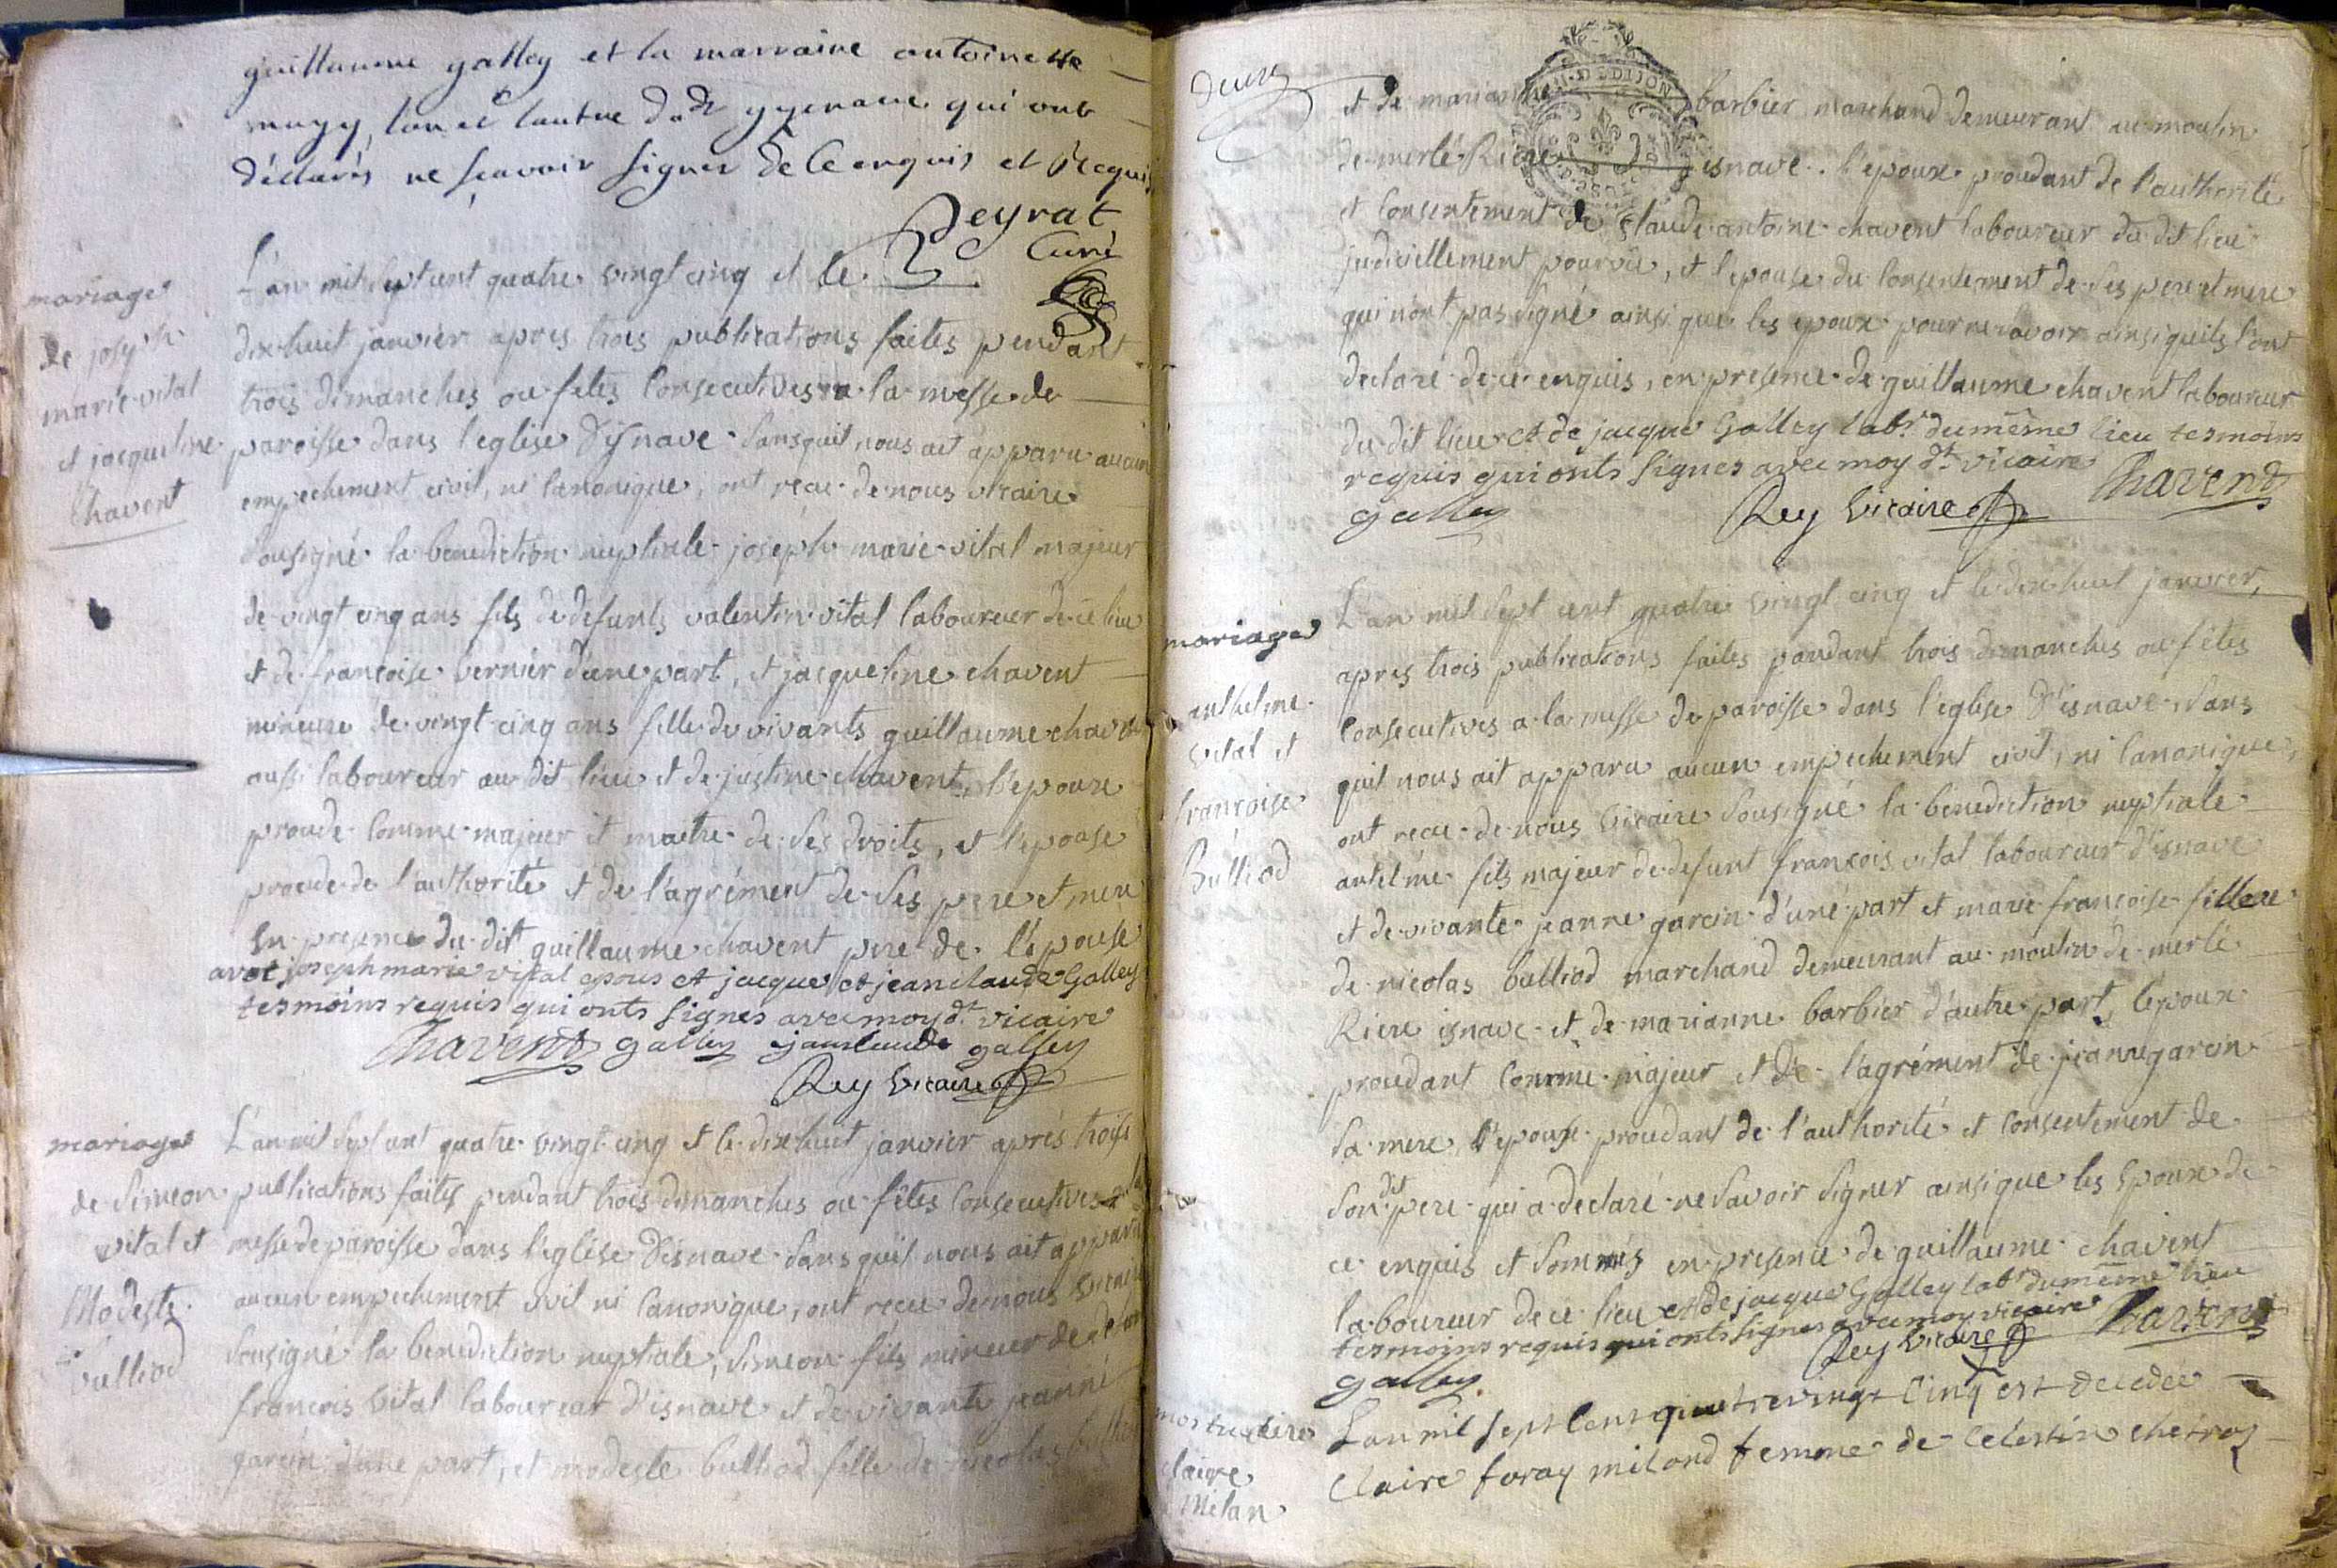 guillaume galley et la marraine antoinette
mugy, lun et lautre dudt gyenave qui ont
déclarés ne sçavoir signer de ce enquis et Requis
Peyrat
Curé
L'an mil sept cent quatre vingt cinq et le
mariage
dix huit janvier apres trois publications faites pendant
de joseph
trois dimanches ou fetes consecutives a la messe de
marie vital
paroisse dans l'eglise d'isnave sans quil nous ait apparu aucun
et jacqueline
empechement civil, ni canonique, ont recu de nous vicaire
Chavent
sousigné la benediction nuptiale joseph marie vital majeur
de vingt cinq ans fils de defunts valentin vital laboureur de ce lieu
et de francoise bernier d'une part, et jacqueline chavent
mineure de vingt cinq ans fille de vivants guillaume chavent
aussi laboureur au dit lieu et de justine chavent, l'epoux
procede comme majeur et maitre de ses droits, et l'epouse
procede de l'authorité et de l'agrément de ses pere et mere
en presence du dit guillaume chavent pere de l'épouse
avec joseph marie vital epous et jacque et jean claude Galley
tesmoins requis qui onts signes avec moy dt vicaire
Chavent galley jan claude galley
Rey vicaire
mariage
L'an mil sept cent quatre vingt cinq et le dix huit janvier aprés trois
de simeon
publications faites pendant trois dimanches ou fêtes consecutives a la
vital et
messe de paroisse dans l'église d'isnave sans quil nous ait apparu
Modeste
aucun empechement civil ni canonique, ont recu de nous vicaire
bulliod
sousigné la benediction nuptiale, simeon fils mineur de defunt
francois vital laboureur d'isnave et de vivante jeanne
garcin d'une part, et modeste bulliod fille de nicolas bulliod
deux
et de marianne barbier marchand demeurant au moulin
de merlé Riere isnave. l'epoux procedant de l'authorité
et consentement de claude antoine chavent laboureur du dit lieu
judiciellement pourvu, et l'epouse du consentement de ses pere et mere
qui n'ont pas signé ainsi que les epoux pour ne savoir ainsi quils l'ont
declaré de ce enquis, en presence de guillaume chavent laboureur
du dit lieu et de jacque Galley labr. du même lieu tesmoins
requis qui onts signes avec moy dt vicaire Chavent
galley Rey vicaire
mariage
L'an mil sept cent quatre vingt cinq et le dix huit janvier,
apres trois publications faites pendant trois dimanches ou fêtes
anthelme
consecutives a la messe de paroisse dans l'eglise d'isnave, sans
vital et
quil nous ait apparu aucun empechement civil, ni canonique,
francoise
ont recu de nous vicaire sousigné la benediction nuptiale
Bulliod
antelme fils majeur de defunt francois vital laboureur d'isnave
et de vivante jeanne garcin d'une part et marie francoise fillere
de nicolas bulliod marchand demeurant au moulin de merlé
Riere isnave et de marianne barbier d'autre part, l'epoux
procedant comme majeur et de l'agrément de jeanne garcin
sa mere, l'epouse procedant de l'authorité et consentement de
son dit pere qui a declaré ne savoir signer ainsi que les epoux de
ce enquis et sommés en presence de guillaume chavent
laboureur de ce lieu et de jacque Galley labr du même lieu
tesmoins requis qui onts signes avec moy vicaire Chavent
Rey vicaire
galley
mortuaire
L'an mil sept cent quatre vingt cinq est decedée
claire
Claire foray miland femme de Celestin cheiroz
Milan